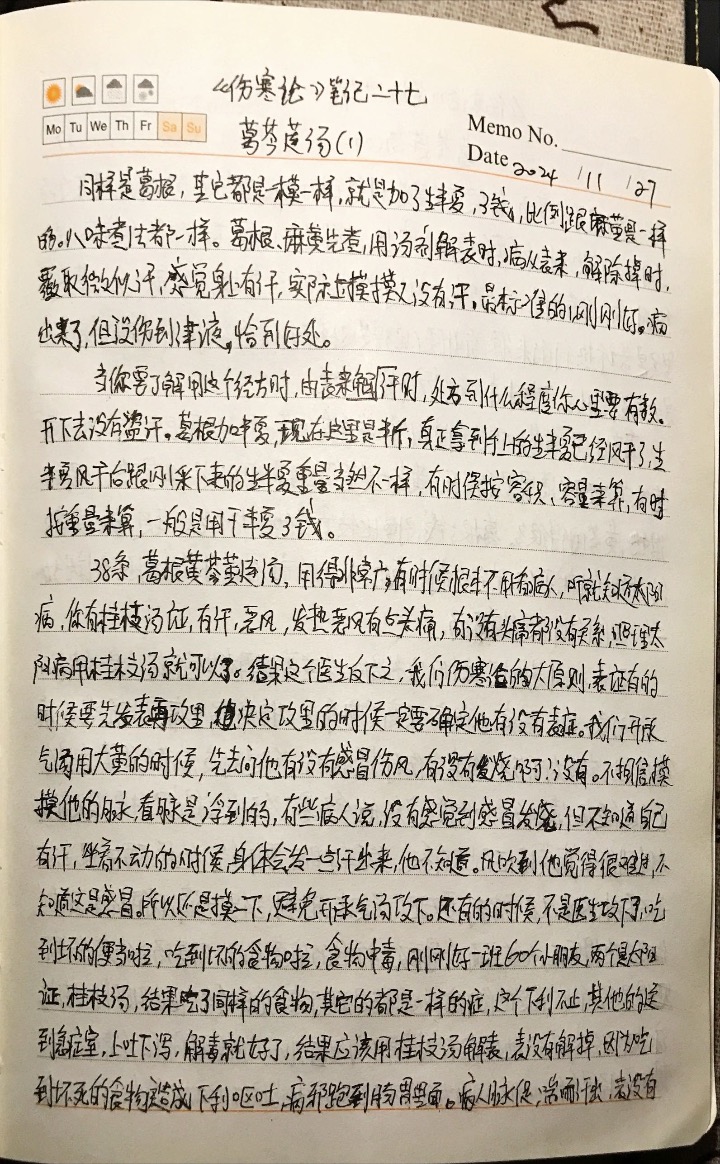 《伤寒论》笔记二十七
Mo Tu We Th Fr Sa Su
葛芩连汤(1)
Memo No.
Date 2024 /11 /27
同样是葛根,其它都是一模一样,就是加了生半夏,3钱,比例跟麻黄是一样
的。八味煮法都一样。葛根、麻黄先煮,用汤剂解表时,病从表来,解除掉时,
覆取微似汗,感觉身上有汗,实际上摸摸又没有汗。最标准的,刚刚好。病
出来了,但没伤到津液,恰到好处。
当你要了解用这个经方时,由表来解汗时,处方到什么程度你心里要有数。
开下去没有盗汗。葛根加半夏,现在这里是半斤,真正拿到手上的生半夏已经风干了,生
半夏风干后跟刚采下来的生半夏重量当然不一样,有时候按容积、容量来算,有时
按重量来算,一般是用干半夏3钱。
38条,葛根黄芩黄连汤,用得非常广,有时候根本不用看病人,听就知道太阳
病,你有桂枝汤证,有汗,恶风,发热恶风有点头痛,有没有头痛都没有关系,照理太
阳病用桂枝汤就可以了。结果这个医生反下之,我们伤寒论的大原则,表证有的
时候要先发表再攻里,决定攻里的时候一定要确定他有没有表症。我们开承
气汤用大黄的时候,先去问他有没有感冒伤风,有没有发烧啊?没有。不相信摸
摸他的脉,看脉是浮到的,有些病人说,没有感觉到感冒发烧,但不知道自己
有汗,坐着不动的时候,身体会发一点汗出来,他不知道。风吹到他觉得很难过,不
知道这是感冒。所以还是摸一下,避免开承气汤攻下。还有的时候,不是医生攻下,吃
到坏的便当啦,吃到坏的食物啦,食物中毒,刚刚好一班60个小朋友,两个是太阳
证,桂枝汤,结果吃了同样的食物,其它的都是一样的症,这个下利不止,其他的送
到急症室,上吐下泻,解毒就好了,结果应该用桂枝汤解表,表没有解掉,因为吃
到坏死的食物造成下利呕吐,病邪跑到肠胃里面。病人脉促,喘而汗出,表没有